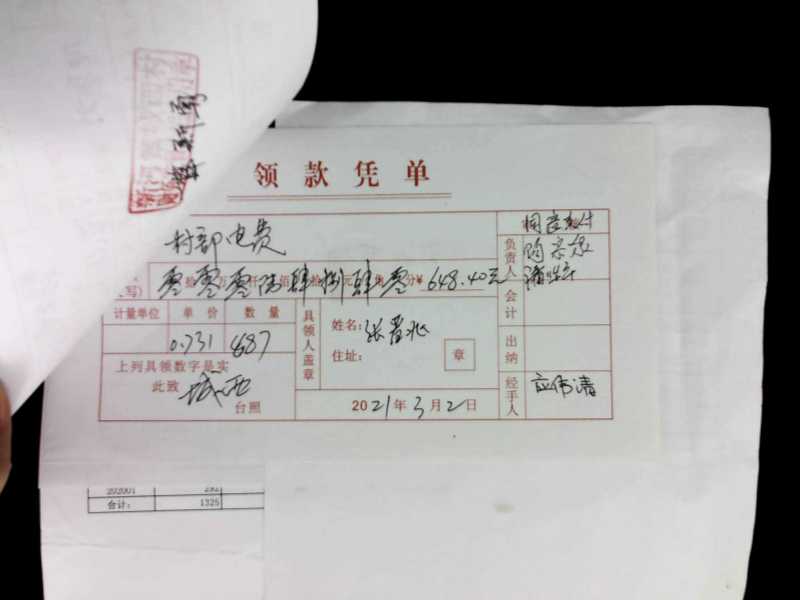 领款凭单
村部电费
零拾零万零仟陆佰肆拾捌元肆角零分¥ 648.40元
计量单位 单价 数量
0.731 887
上列具领数字是实
此致
城西
台照
具领人盖章
姓名：张晋兆
住址：
章
2021年3月2日
同意支付
负责人
会计
出纳
经手人 应伟清
202001 292
合计： 1325